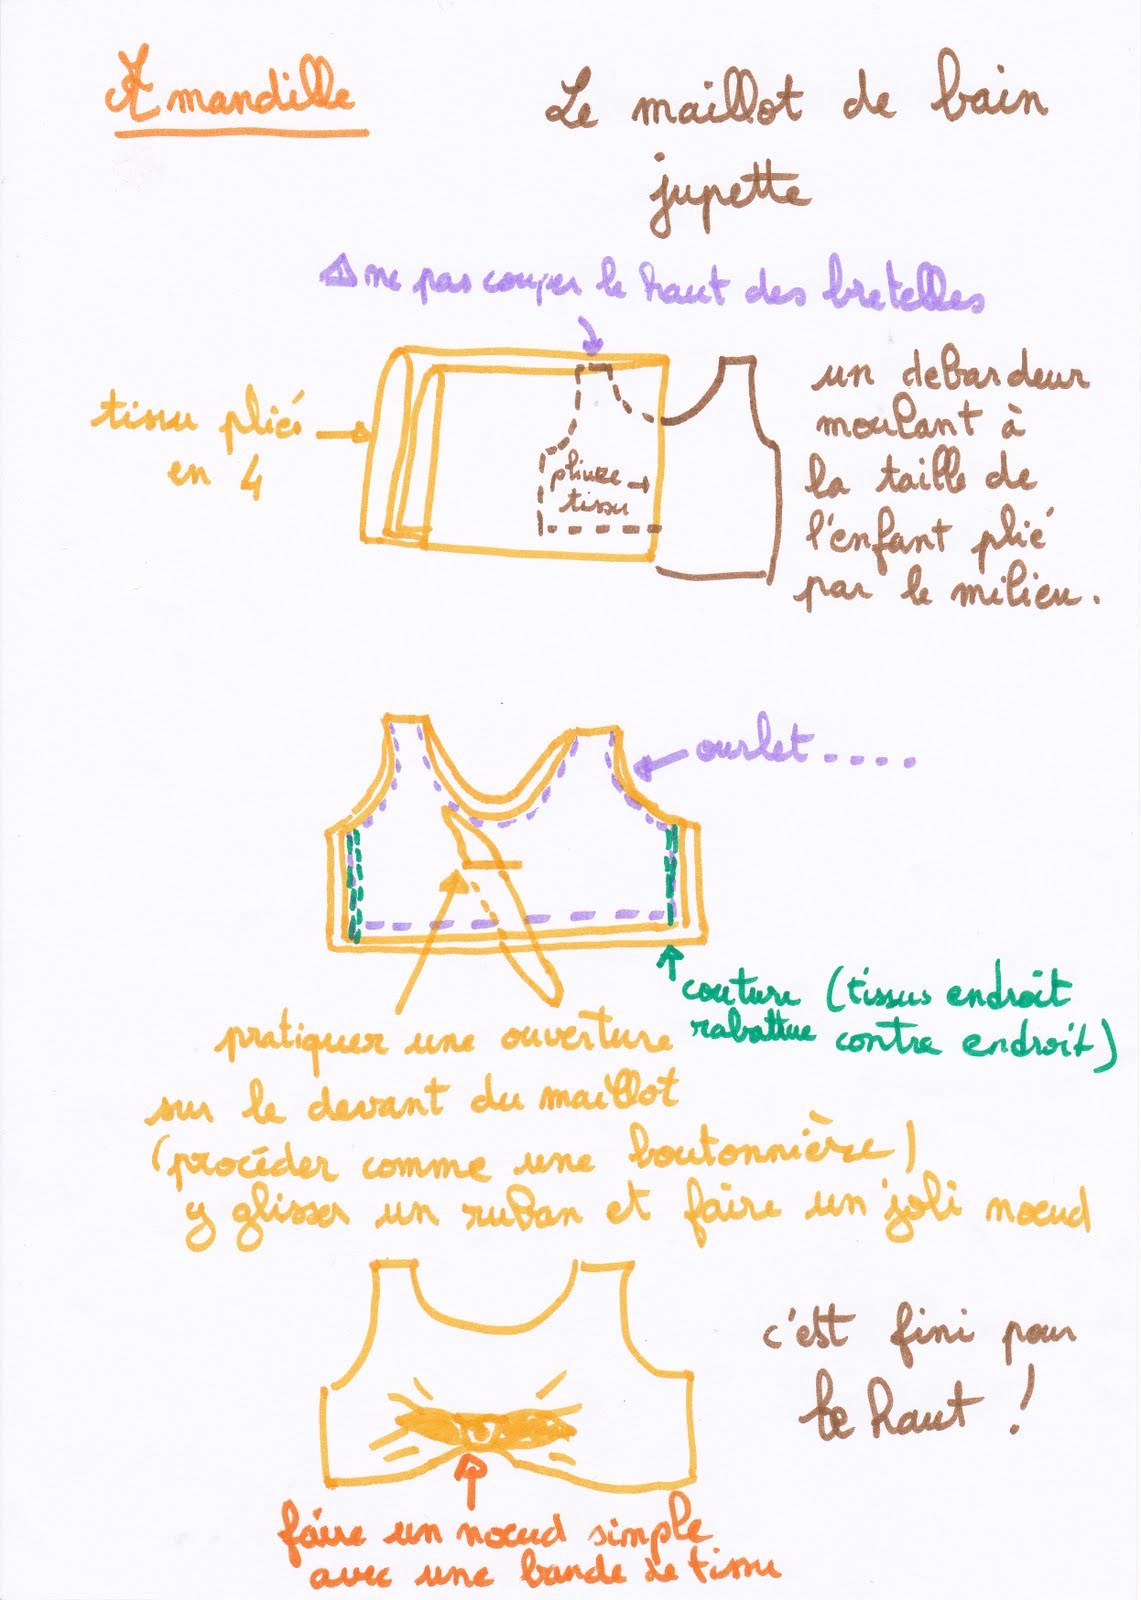 Amandille
Le maillot de bain
jupette
⚠ ne pas couper le haut des bretelles
tissu plié
en 4
pliure
tissu
un debardeur
moulant à
la taille de
l'enfant plié
par le milieu.
ourlet....
couture (tissus endroit
rabattue contre endroit)
pratiquer une ouverture
sur le devant du maillot
(procéder comme une boutonnière)
y glisser un ruban et faire un joli nœud
c'est fini pour
le haut !
faire un nœud simple
avec une bande de tissu